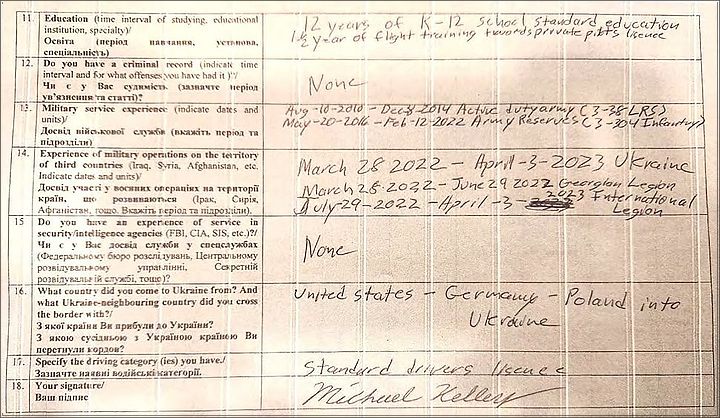 11. Education (time interval of studying, educational
institution, specialty)/
Освіта (період навчання, установа,
спеціальність)
12 years of K-12 school standard education
1.5 year of flight training towards private pilots licence
12. Do you have a criminal record (indicate time
interval and for what offenses you have had it)?/
Чи є у Вас судимість (зазначте період
ув'язнення та статті)?
None
13. Military service experience (indicate dates and
units)/
Досвід військової служби (вкажіть період та
підрозділи)
Aug-10-2010 - Dec 2014 Active duty army (3-38 LRS)
May-20-2016 - Feb-12-2022 Army Reserves (3-304 Infantry)
14. Experience of military operations on the territory
of third countries (Iraq, Syria, Afghanistan, etc.
Indicate dates and units)/
Досвід участі у воєнних операціях на території
країн, що розвиваються (Ірак, Сирія,
Афганістан, тощо. Вкажіть період та підрозділи).
March 28 2022 - April-3-2023 Ukraine
March 28-2022 - June 29 2022 Georgian Legion
July-29-2022 - April -3- 2023 International
Legion
15 Do you have an experience of service in
security/intelligence agencies (FBI, CIA, SIS, etc.)?/
Чи є у Вас досвід служби у спецслужбах
(Федеральному бюро розслідувань, Центральному
розвідувальному управлінні, Секретній
розвідувальній службі, тощо)?
None
16. What country did you come to Ukraine from? And
what Ukraine-neighbouring country did you cross
the border with?/
З якої країни Ви прибули до України?
З якою сусідньою з Україною країною Ви
перетнули кордон?
United states - Germany - Poland into
Ukraine
17. Specify the driving category (ies) you have./
Зазначте наявні водійські категорії.
Standard drivers licence
18. Your signature/
Ваш підпис
Michael Kellery